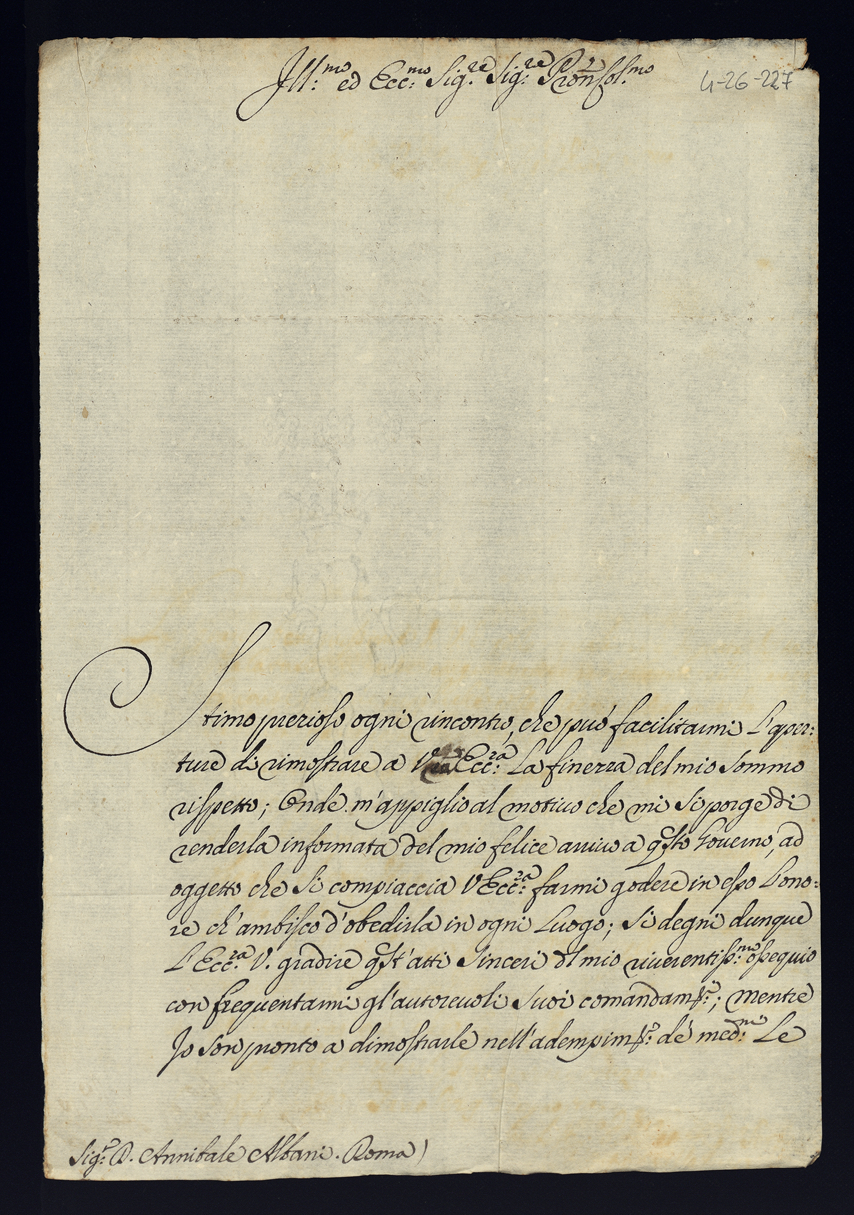 Ill:mo ed Ecc:mo Sig:re Sig:re Pron Col:mo
4-26-227
Stimo prezioso ogni rincontro, che può facilitarmi l'aper:
ture di rimostrare a Vra Ecc:za La finezza del mio sommo
rispetto; Onde m'appiglio al motivo che mi si porge di
renderla informata del mio felice arrivo a qsto Governo, ad
oggetto che si compiaccia V Ecc:za farmi godere in esso l'ono:
re ch'ambisco d'obedirla in ogni Luogo; si degni dunque
L'Ecc:za V. gradire qst'atti sinceri dl mio riverentiss:mo ossequio
con frequentarmi gl'autorevoli suoi comandam:ti; mentre
Io son pronto a dimostrarle nell'adempim:to de' med:mi Le
Sig:r D. Annibale Albani. Roma)